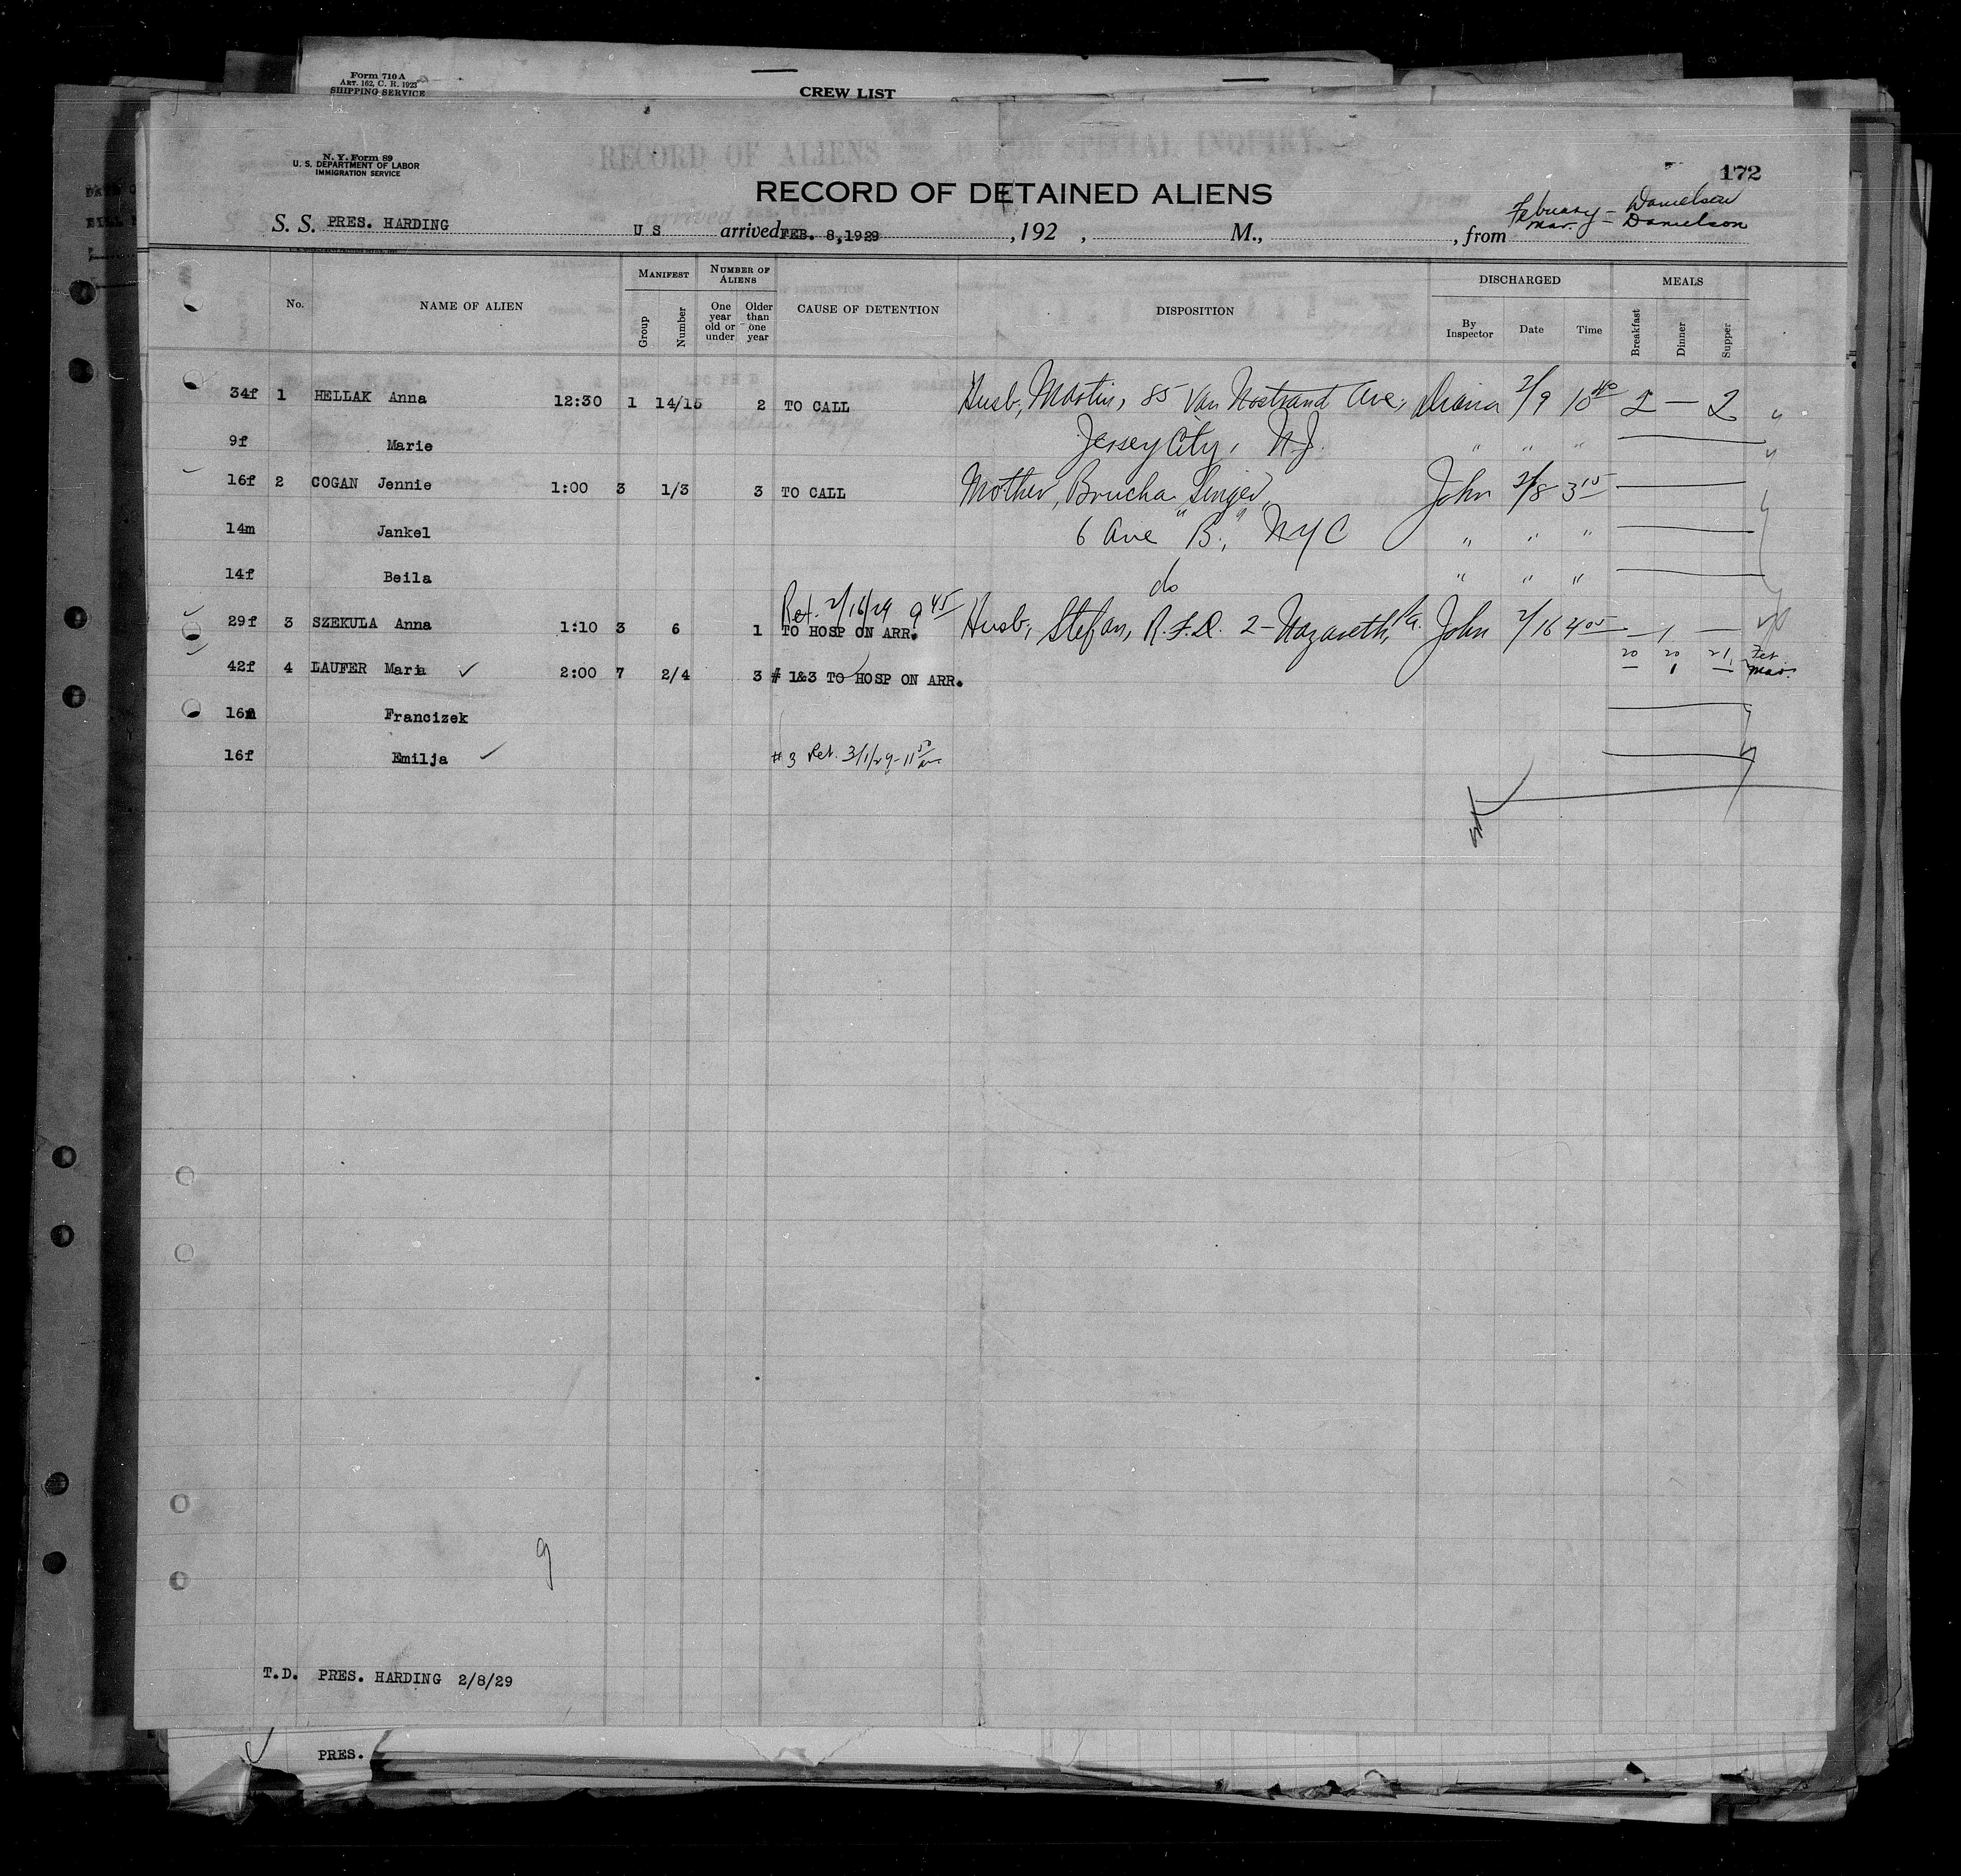 Form 710 A
ART. 162, C. R. 1923
SHIPPING SERVICE
CREW LIST
N. Y. Form 89
U. S. DEPARTMENT OF LABOR
IMMIGRATION SERVICE
172
RECORD OF DETAINED ALIENS
February - Danielson
Mar. - Danielson
S. S. PRES. HARDING U S arrived FEB. 8,1929 ,192 , M., , from
No. NAME OF ALIEN MANIFEST Group Number NUMBER OF ALIENS One year old or under Older than one year CAUSE OF DETENTION DISPOSITION DISCHARGED By Inspector Date Time MEALS Breakfast Dinner Supper
34f 1 HELLAK Anna 12:30 1 14/15 2 TO CALL Husb, Martin, 85 Van Nostrand Ave, 2/9 10 40 2 — 2 "
9f Marie Jersey City, N.J. " " "
16f 2 COGAN Jennie 1:00 3 1/3 3 TO CALL Mother, Brucha Singer, John 2/8 3 15
14m Jankel 6 Ave "B", NYC " " "
14f Beila do " " "
Ret. 2/16/29 9 45
29f 3 SZEKULA Anna 1:10 3 6 1 TO HOSP ON ARR. Husb, Stefan, R.F.D. 2 - Nazareth, Pa. John 2/16 4 05 — 1 —
20 20 21 Feb
42f 4 LAUFER Maria ✓ 2:00 7 2/4 3 # 1&3 TO HOSP ON ARR. — 1 — Mar.
16m Francizek
16f Emilja ✓ # 3 Ret. 3/1/29 - 11 50 am
9
T.D. PRES. HARDING 2/8/29
PRES.